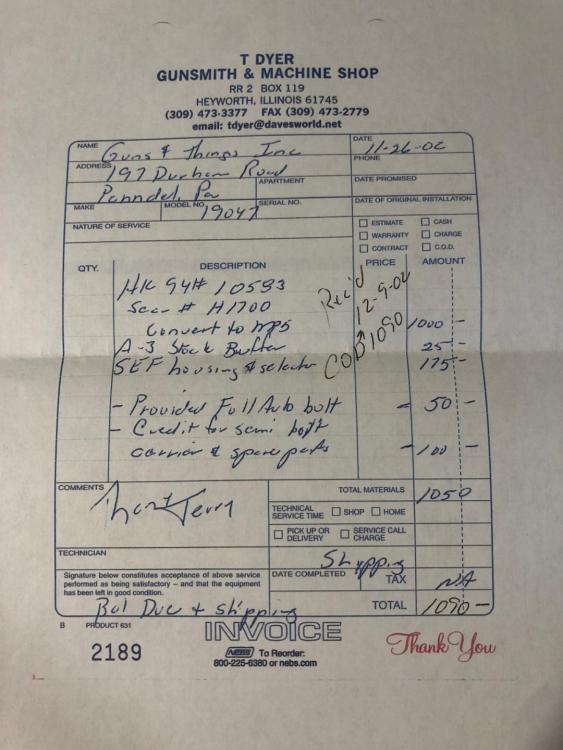 T DYER
GUNSMITH & MACHINE SHOP
RR 2 BOX 119
HEYWORTH, ILLINOIS 61745
(309) 473-3377 FAX (309) 473-2779
email: tdyer@davesworld.net
NAME Guns & Things Inc
DATE 11-26-02
ADDRESS 197 Durham Road
PHONE
APARTMENT
DATE PROMISED
Penndel, Pa
MAKE MODEL NO. 19047 SERIAL NO.
DATE OF ORIGINAL INSTALLATION
NATURE OF SERVICE
ESTIMATE CASH
WARRANTY CHARGE
CONTRACT C.O.D.
QTY. DESCRIPTION PRICE AMOUNT
HK 94# 10593
Sear # H1700
Convert to MP5 1000 -
A-3 Stock Buffer 25 -
SEF housing & selector 175 -
Rec'd
12-9-02
COD 1090
- Provided Full Auto bolt - 50 -
- Credit for semi bolt
carrier & spare parts - 100 -
COMMENTS
Thanks Terry
TOTAL MATERIALS 1050
TECHNICAL SERVICE TIME SHOP HOME
PICK UP OR DELIVERY SERVICE CALL CHARGE
TECHNICIAN
Shipping
Signature below constitutes acceptance of above service
performed as being satisfactory – and that the equipment
has been left in good condition.
DATE COMPLETED TAX NA
Bal Due & shipping
TOTAL 1090 -
B PRODUCT 631
INVOICE
Thank You
2189
NEBS To Reorder:
800-225-6380 or nebs.com